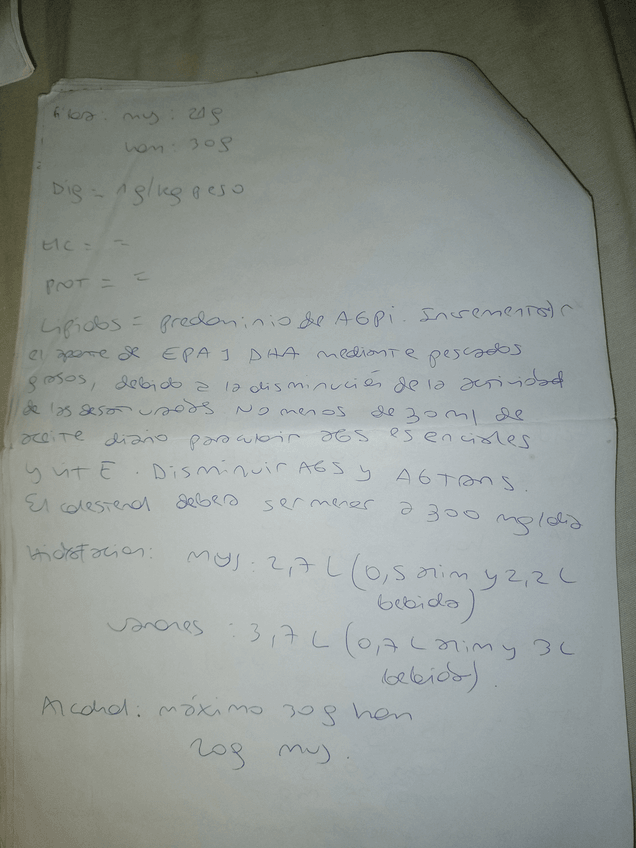 Fibra: muj: 21g
hom: 30g
Dig = 1g/kg peso
HC = =
PROT = =
Lípidos = predominio de AGPi. Incrementar
el aporte de EPA y DHA mediante pescados
grasos, debido a la disminución de la actividad
de las desaturasas No menos de 30 ml de
aceite diario para cubrir AGS esenciales
y vit E. Disminuir AGS y AGTrans.
El colesterol deberá ser menor a 300 mg/día
Hidratacion: muj: 2,7 L (0,5 alim y 2,2 L
bebida)
varones : 3,7 L (0,7 L alim y 3L
bebida).
Alcohol: máximo 30g hom
20g muj.